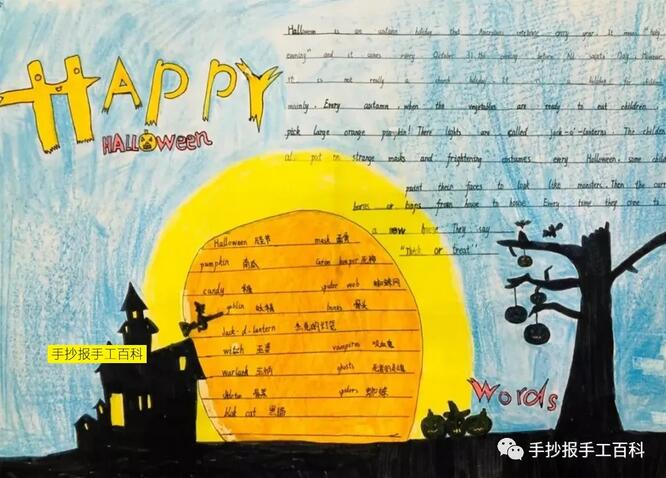 HAPPY
HALLOween
Halloween is an autumn holiday that Americans celebrate every year. It means "holy
evening" and it comes every October 31. the evening before
It is not really a church holiday it is a holiday for children
mainly. Every autumn, when the vegetables are ready to eat children,
pick large orange pumpkin! There lights are called jack-o'-lanterns. The children
also put on strange masks and frightening costumes every Halloween, some child
paint their faces to look like monsters. Then the
boxes or bags from house to house Every time they come to
a new house They say
"Trick or treat".
Halloween 万圣节 mask 面具
pumpkin 南瓜 死神
candy 糖 spider web 蜘蛛网
goblin 妖精 bones 骨头
Jack-o-lantern 杰克的灯笼
witch 巫婆 vampires 吸血鬼
warlock 巫师 ghosts
骨架 蜘蛛
cat 黑猫
Words
手抄报手工百科
手抄报手工百科